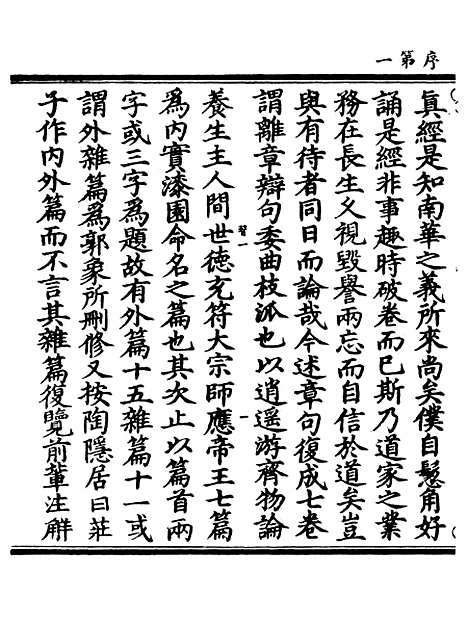 序第一
真經是知南華之義所來尚矣僕自髫角好
誦是經非事趣時破卷而已斯乃道家之業
務在長生乆視毀譽兩忘而自信於道矣豈
與有待者同日而論哉今述章句復成七卷
謂離章辯句委曲枝派也以逍遥游齊物論
養生主人間世德充符大宗師應帝王七篇
爲内實漆園命名之篇也其次止以篇首兩
字或三字爲題故有外篇十五雜篇十一或
謂外雜篇爲郭象所刪修又按陶隱居曰莊
子作内外篇而不言其雜篇復覽前輩注解